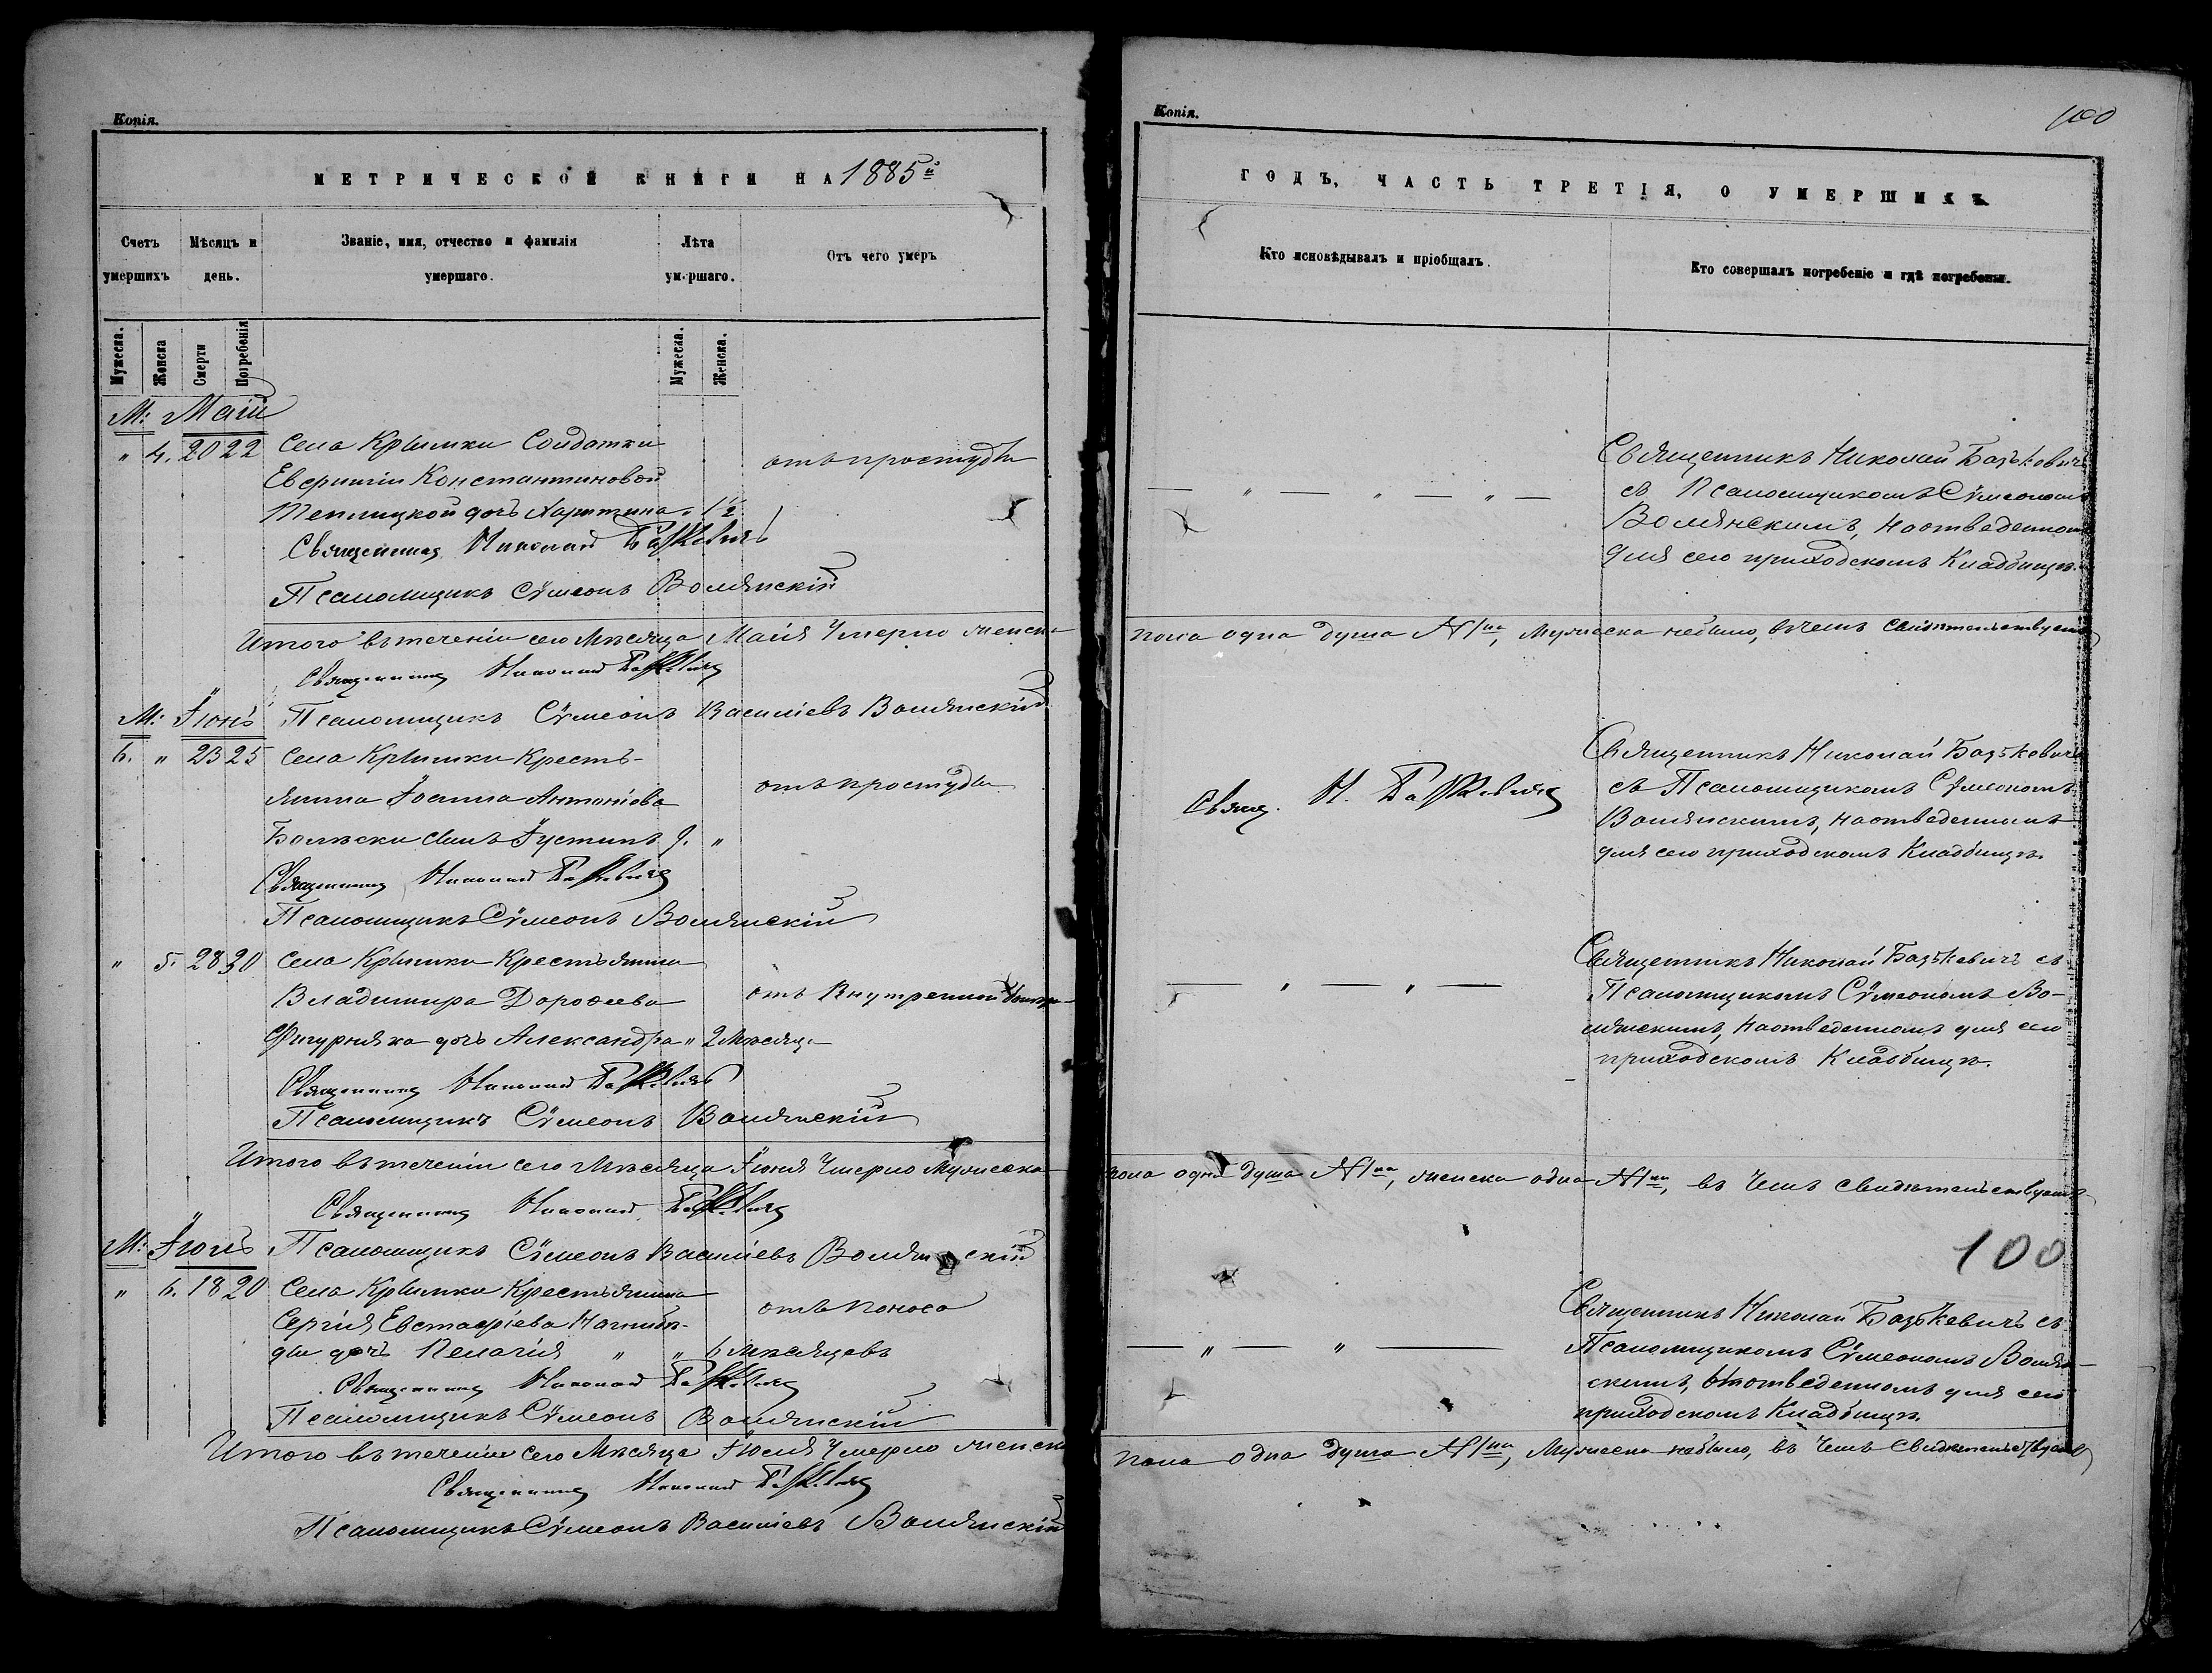 Копія.
МЕТРИЧЕСКОЙ КНИГИ НА 1885й
Счетъ умершихъ
Мѣсяцъ и день.
Званіе, имя, отчество и фамилія умершаго.
Лѣта умершаго.
Отъ чего умеръ
Мужеска.
Женска
Смерти
Погребенія
Мужеска.
Женска.
М: Маій
" 4. 20 22 Села Крымки Солдатки
Евфиміи Константиновой
Теплицкой дочь Харитина " 1½
отъ простуды
Священникъ Николай Базькевичъ
Псаломщикъ Сѵмеонъ Волянскій
Итого въ теченіи сего Мѣсяца Маія Умерло женска
Священникъ Николай Базькевичъ
Псаломщикъ Сѵмеонъ Василіевъ Волянскій
М: Іюнь
6. " 23 25 Села Крымки Кресть-
янина Іоанна Антоніева
сынъ Іустинъ 9. "
отъ простуды
Священникъ Николай Базькевичъ
Псаломщикъ Сѵмеонъ Волянскій
" 5. 28 30 Села Крымки Крестьянина
Владимира Дорофеева
Фигурняка дочь Александра " 2 Мѣсяца
отъ Внутренной
Священникъ Николай Базькевичъ
Псаломщикъ Сѵмеонъ Волянскій
Итого въ теченіи сего Мѣсяца Іюня Умерло Мужеска
Священникъ Николай Базькевичъ
Псаломщикъ Сѵмеонъ Василіевъ Волянскій
М: Іюль
" 6. 18 20 Села Крымки Крестьянина
Сергія Евстафіева
ды дочь Пелагія " " 6 Мѣсяцевъ
отъ поноса
Священникъ Николай Базькевичъ
Псаломщикъ Сѵмеонъ Волянскій
Итого въ теченіи сего Мѣсяца Іюля Умерло женска
Священникъ Николай Базькевичъ
Псаломщикъ Сѵмеонъ Василіевъ Волянскій
Копія.
100
ГОДЪ, ЧАСТЬ ТРЕТІЯ, О УМЕРШИХЪ
Кто исповѣдывалъ и пріобщалъ.
Кто совершалъ погребеніе и гдѣ погребены.
— " — " — " —
Священникъ Николай Базькевичъ
съ Псаломщикомъ Сѵмеономъ
Волянскимъ, на отведенномъ
для сего приходскомъ Кладбищѣ.
пола одна душа №1на, Мужеска небыло, въ чемъ свидѣтельствуемъ
Свящ. Н. Базькевичъ
Священникъ Николай Базькевичъ
съ Псаломщикомъ Сѵмеономъ
Волянскимъ, на отведенномъ
для сего приходскомъ Кладбищѣ.
— " — " —
Священникъ Николай Базькевичъ съ
Псаломщикомъ Сѵмеономъ Во-
лянскимъ, на отведенномъ для сего
приходскомъ Кладбищѣ.
пола одна душа №1на, женска одна №1на, въ чемъ свидѣтельствуемъ
100
— " — " —
Священникъ Николай Базькевичъ съ
Псаломщикомъ Сѵмеономъ Волян-
скимъ, на отведенномъ для сего
приходскомъ Кладбищѣ.
пола одна душа №1на, Мужеска небыло, въ чемъ свидѣтельствуемъ